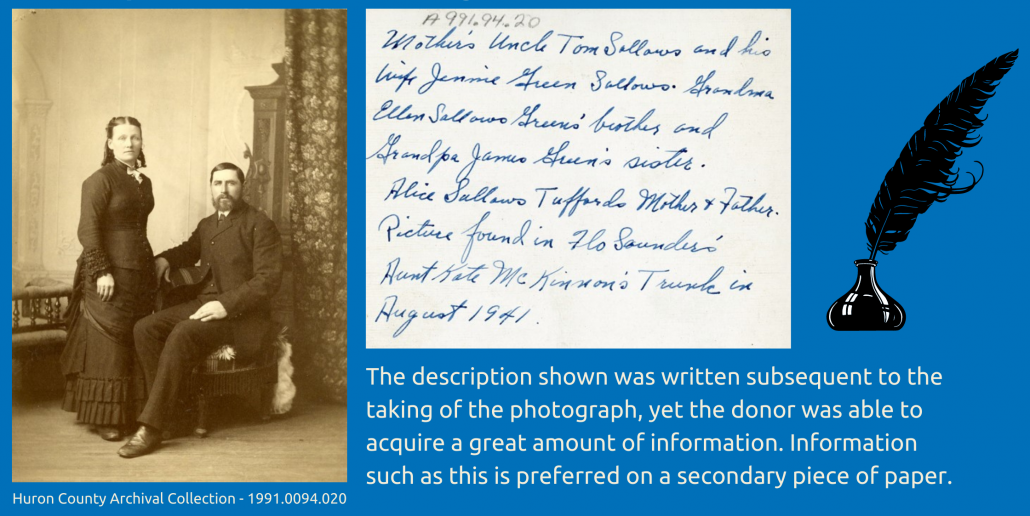 A991.94.20
Mother's Uncle Tom Sallows and his
wife Jennie Green Sallows. Grandma
Ellen Sallows Greens' brother and
Grandpa James Green's sister.
Alice Sallows Tuffords Mother & Father.
Picture found in Flo Saunders'
Aunt Kate McKinnon's Trunk in
August 1941.
The description shown was written subsequent to the
taking of the photograph, yet the donor was able to
acquire a great amount of information. Information
such as this is preferred on a secondary piece of paper.
Huron County Archival Collection - 1991.0094.020